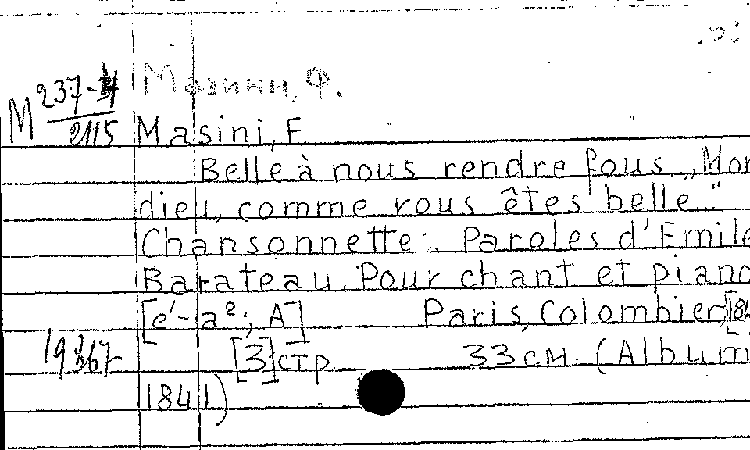 Мазини, Ф.
M 237-4/2115 Masini, F
Belle à nous rendre fous „Mon
dieu, comme vous êtes belle."
Chansonnette. Paroles d'Emile
Barateau. Pour chant et piano
[e'-a²; A] Paris, Colombier, [184
19367 [3] стр 33 см. (Album
1841)